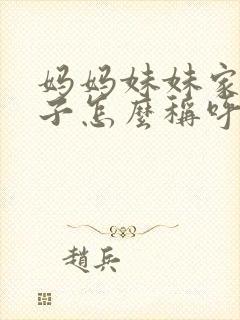 妈妈妹妹家
子怎麼稱呼
趙兵